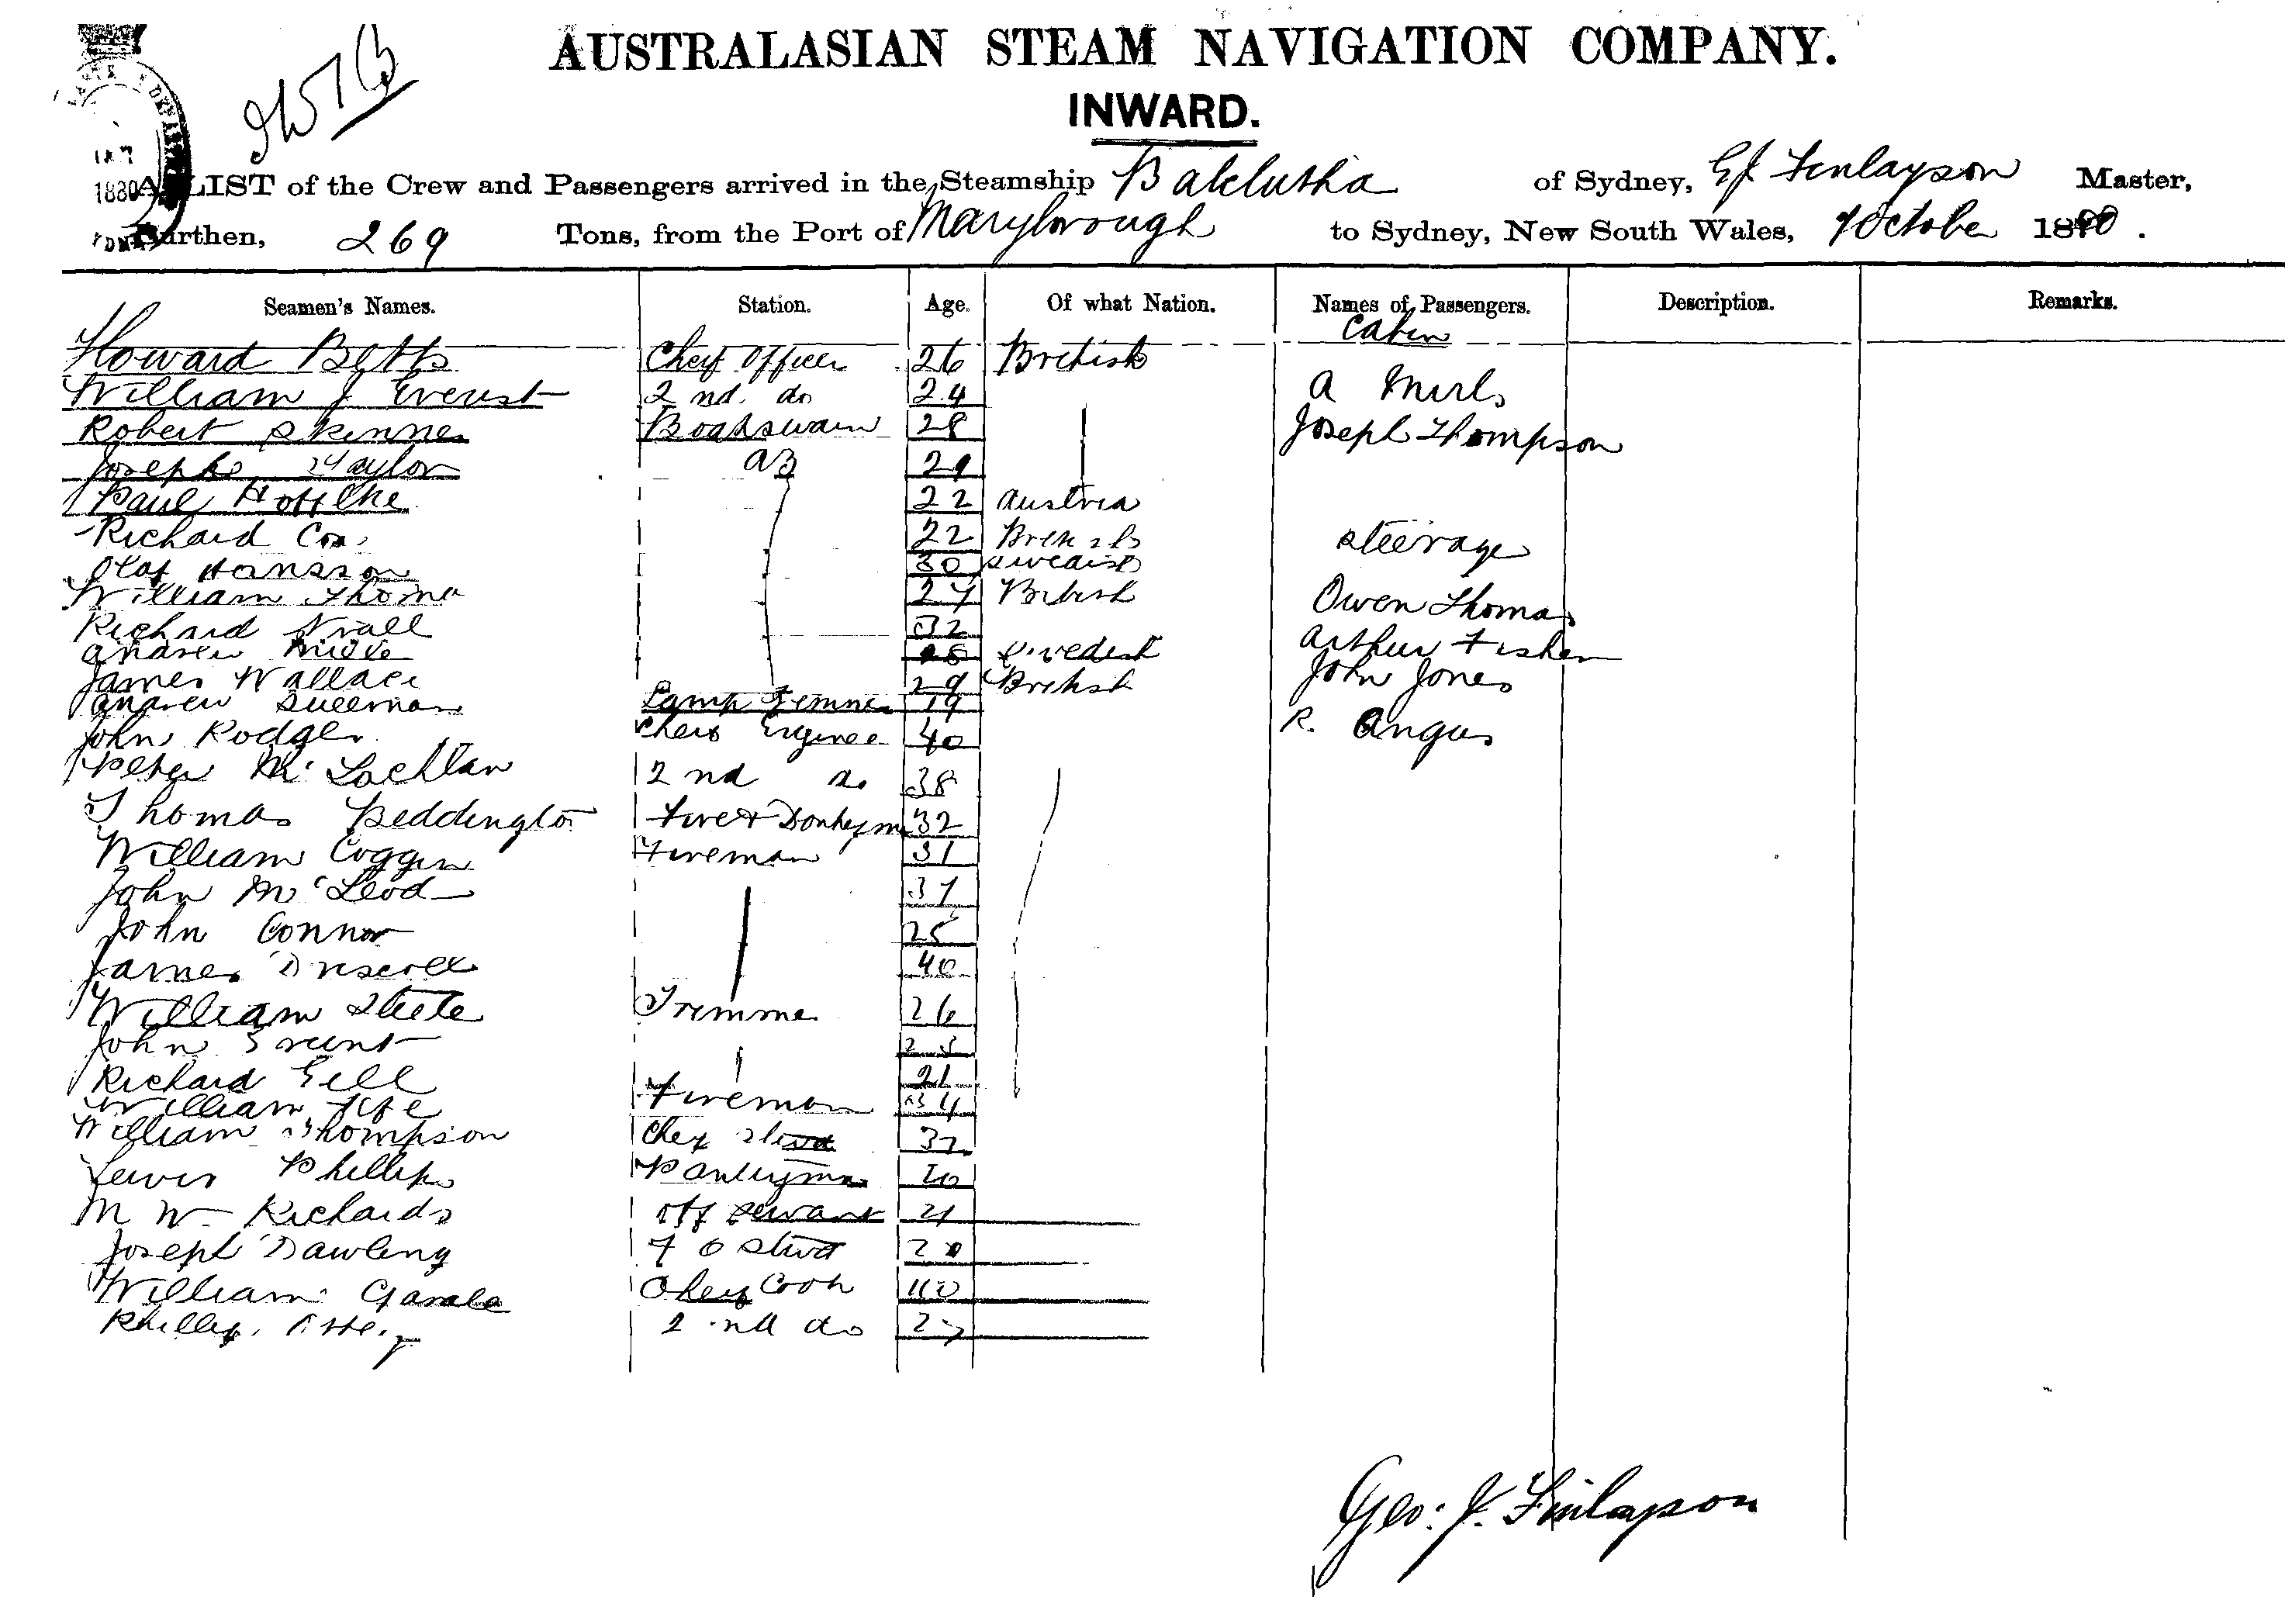 AUSTRALASIAN STEAM NAVIGATION COMPANY.
INWARD.
1880
LIST of the Crew and Passengers arrived in the Steamship Balclutha of Sydney, GJ Finlayson Master,
Burthen, 269 Tons, from the Port of Maryborough to Sydney, New South Wales, 7 October 1880.
Seamen's Names. Station. Age. Of what Nation. Names of Passengers. Description. Remarks.
Cabin
Howard Betts Chief Officer 26 British
William J Everest 2nd do 24 A
Robert Skinner Boatswain 28 Joseph Thompson
Joseph Taylor AB 29
Paul 22 Austria
Richard Cox 22 British Steerage
Olaf Hansson 30 Swedish
William Thomas 27 British Owen Thomas
Richard 32 Arthur Fisher
Andrew 28 Swedish
James Wallace 29 British John Jones
Andrew Lamp Trimmer 19
John Rodger Chief Enginee 40 R. Angus
Peter McLachlan 2nd do 38
Thomas Beddington Fire & Donkeyman 32
William Coggin Fireman 31
John McLeod 37
John Connor 25
James Driscoll 40
William Steele Trimmer 26
John 23
Richard Gell 21
William Fife Fireman 34
William Thompson Chief Stewd 32
Lewis Phillips Pantryman 20
M W Richards Off Servant 21
Joseph Dawling F C Stewd 20
William Chief Cook 40
Phillip 2nd do 27
Geo: J. Finlayson